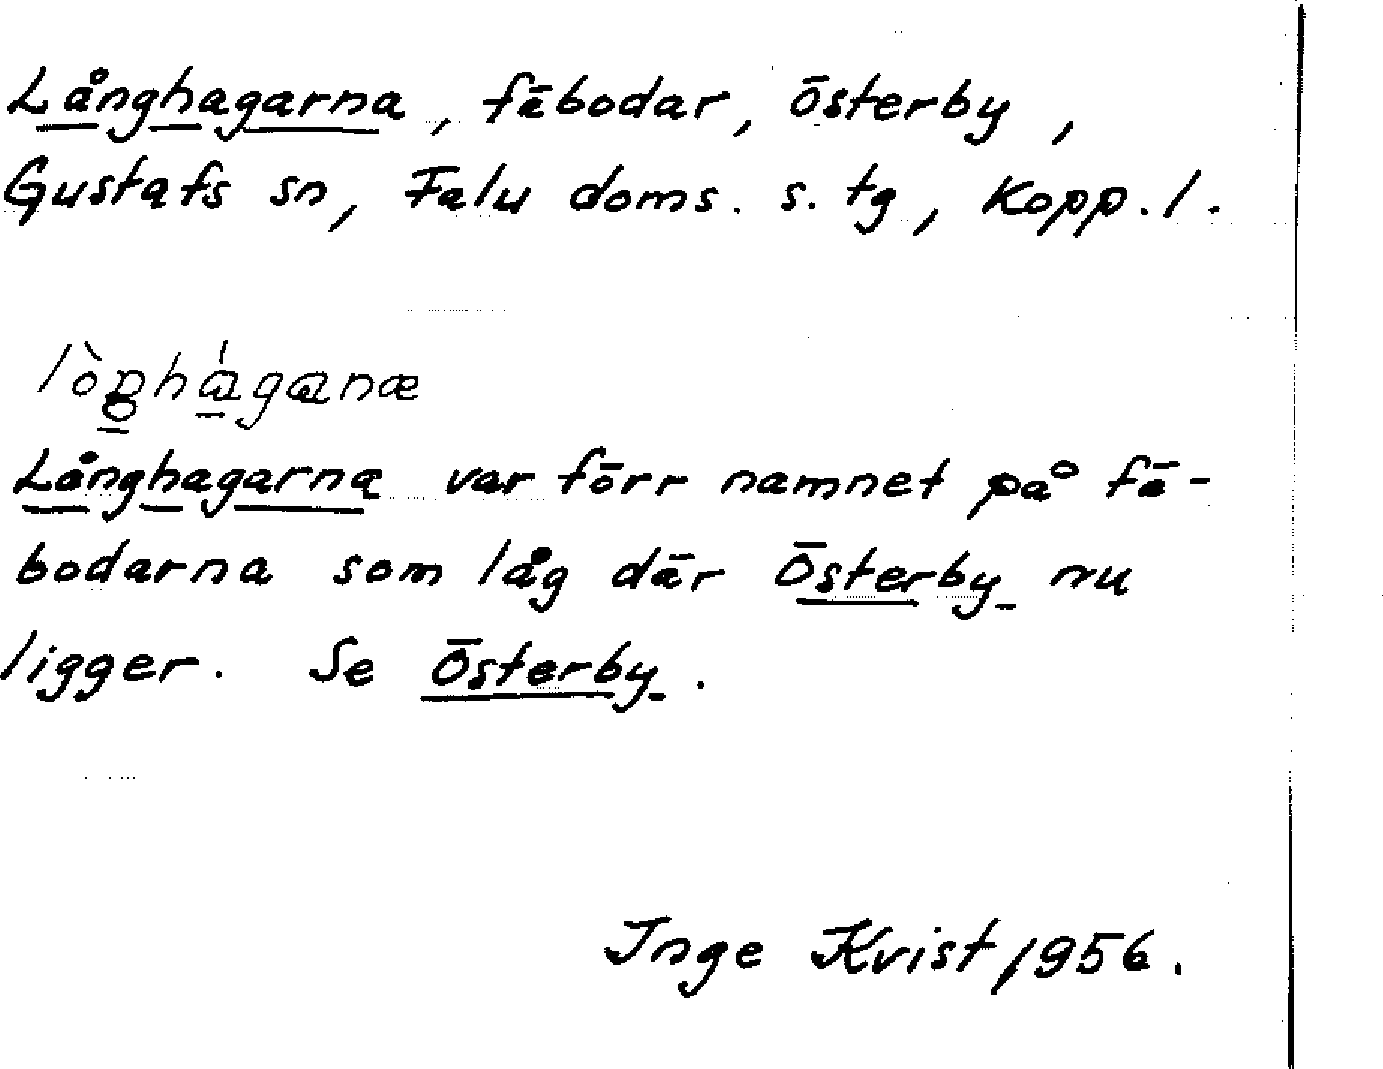 Långhagarna, fäbodar, Österby,
Gustafs sn, Falu doms. s. tg, Kopp. l.
lòŋhá̱gɑnæ
Långhagarna var förr namnet på fä-
bodarna som låg där Österby nu
ligger. Se Österby.
Inge Kvist 1956.